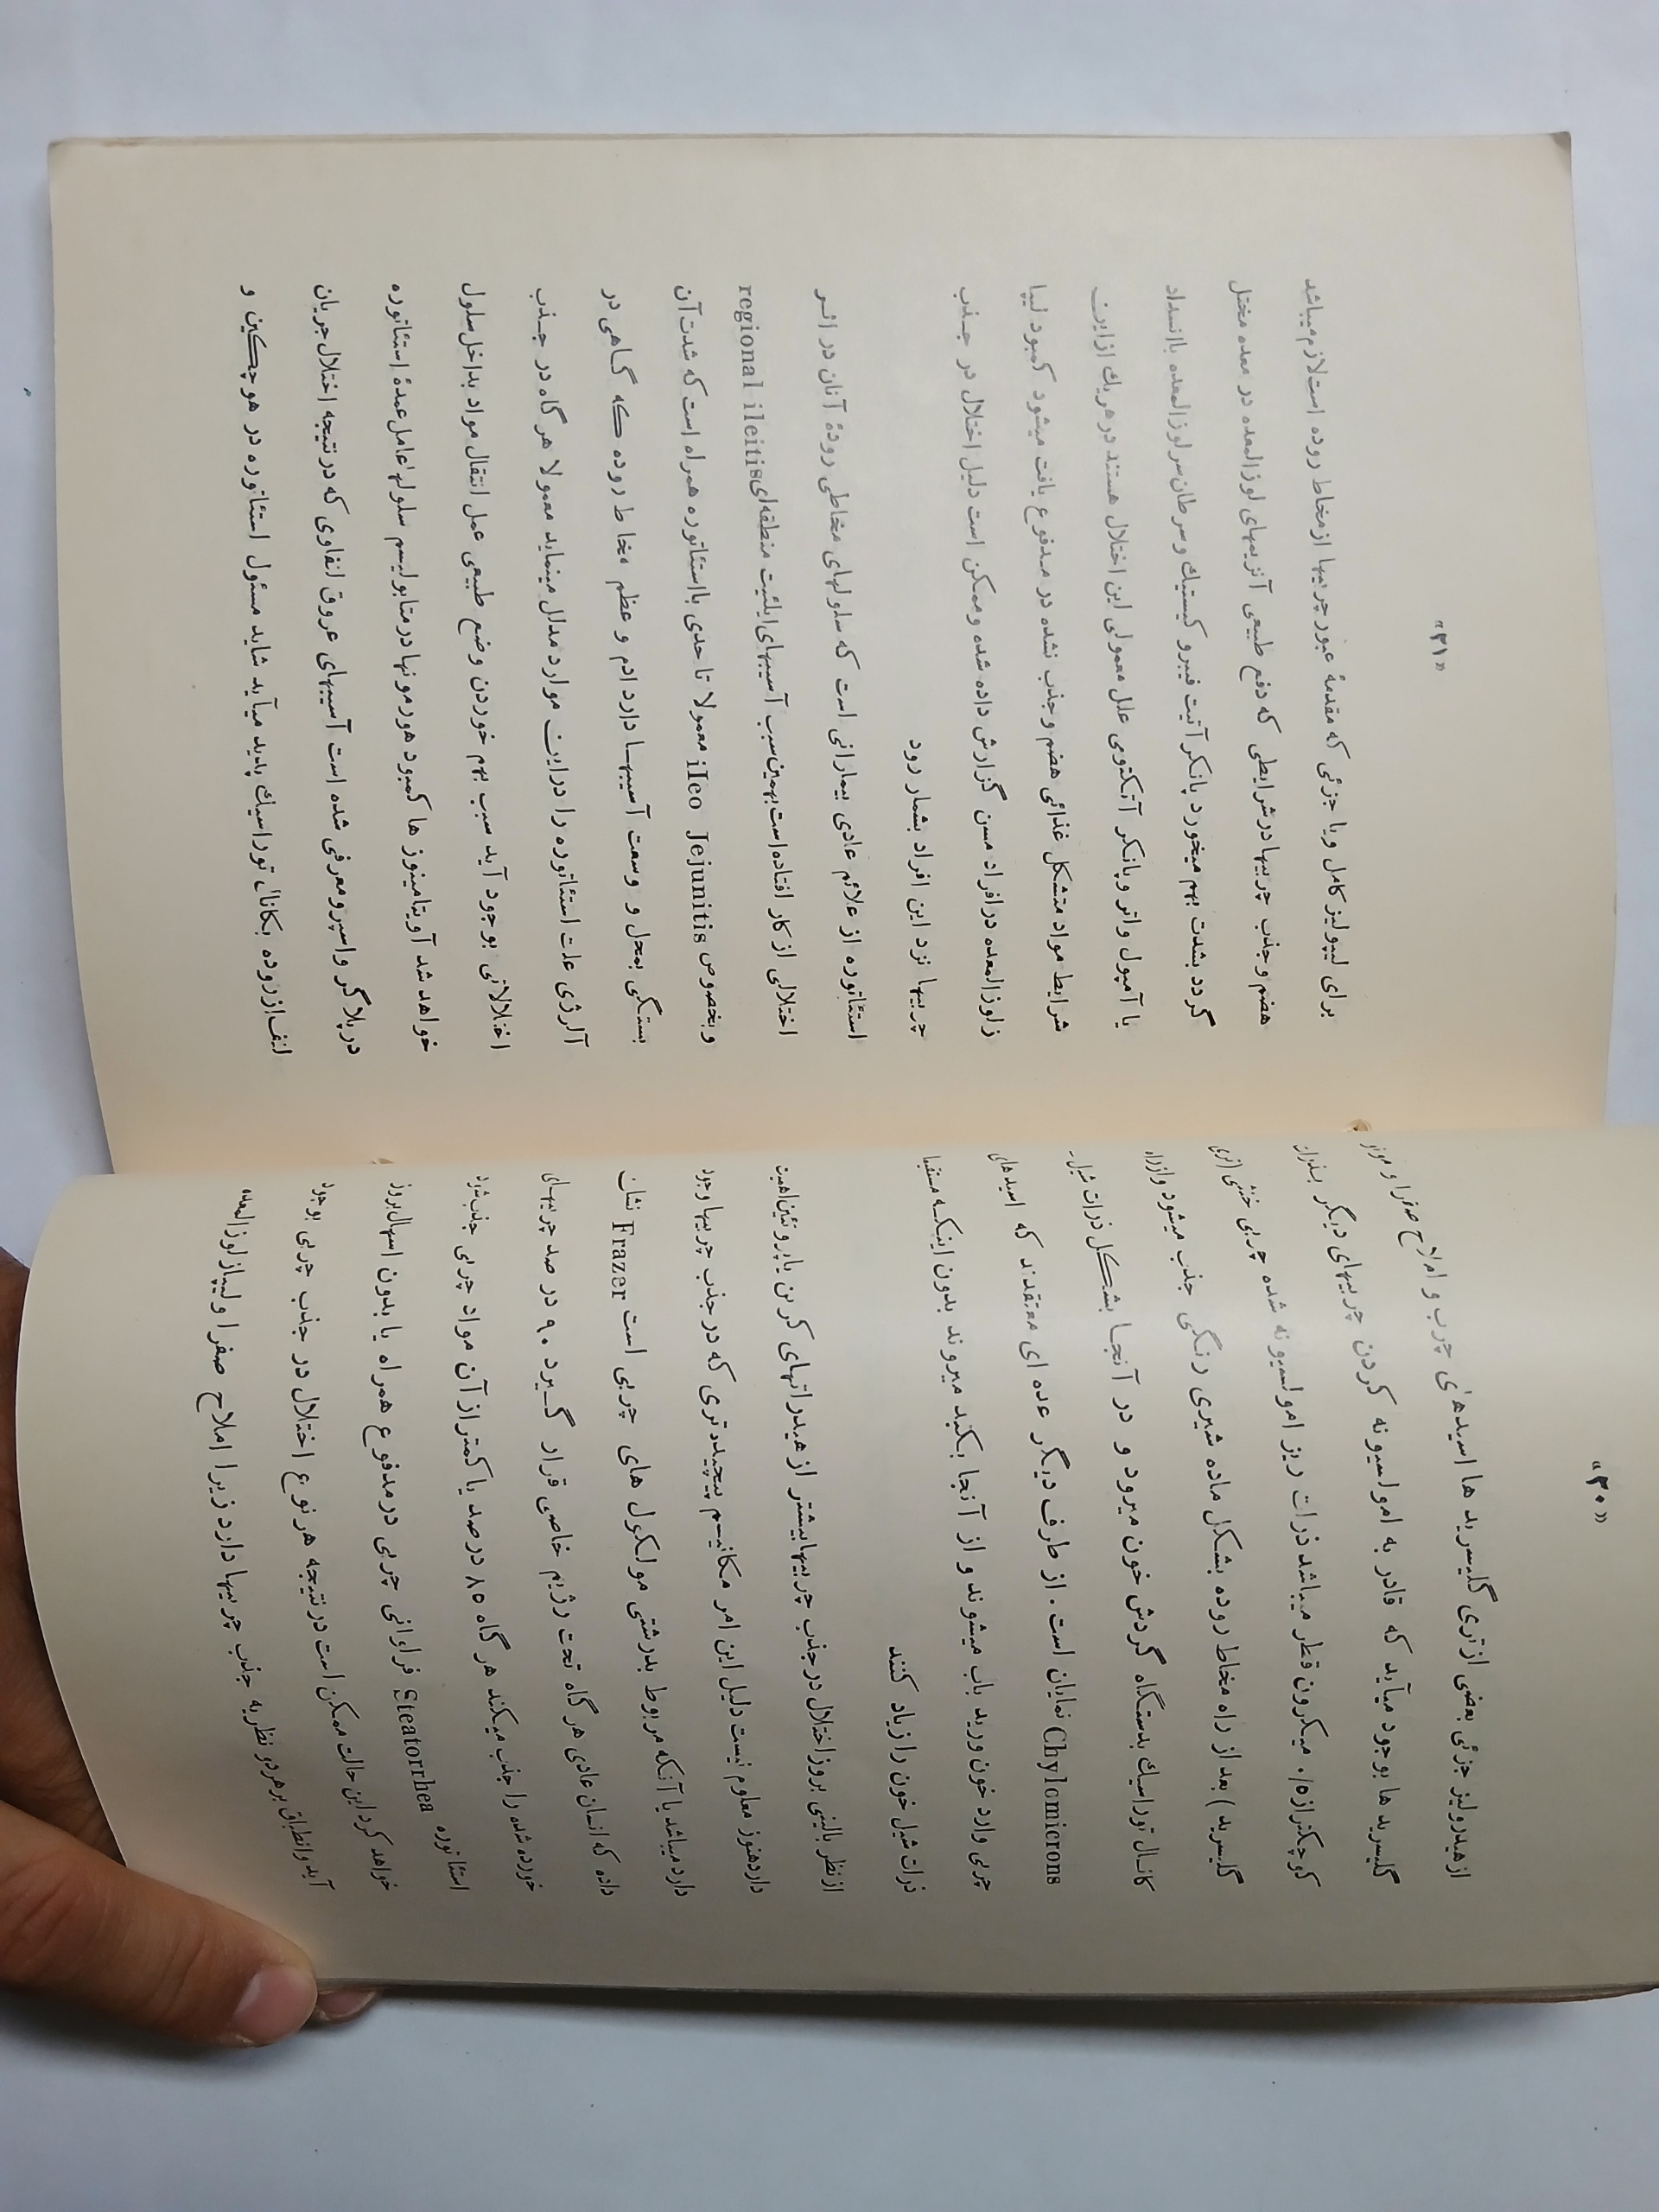 «۳۰»
از هیدرولیز جزئی بعضی از تری گلیسرید ها اسیدهای چرب و املاح صفرا و مونو
گلیسرید ها بوجود میآید که قادر به امولسیونه کردن چربیهای دیگر بذرات
کوچکتر از ۰/۵ میکرون قطر میباشد ذرات ریز امولسیونه شده چربی خنثی (تری
گلیسرید) بعد از راه مخاط روده بشکل ماده شیری رنگی جذب میشود و از راه
کانال توراسیك بدستگاه گردش خون میرود و در آنجا بشکل ذرات شیل -
Chylomicrons نمایان است . از طرف دیگر عده ای معتقدند که اسیدهای
چربی وارد خون ورید باب میشوند و از آنجا بکبد میروند بدون اینکه مستقیما
ذرات شیل خون را زیاد کنند
از نظر بالینی بروز اختلال در جذب چربیها بیشتر از هیدراتهای کربن یا پروتئین اهمیت
دارد هنوز معلوم نیست دلیل این امر مکانیسم پیچیده تری که در جذب چربیها وجود
دارد میباشد یا آنکه مربوط بدرشتی مولکول های چربی است Frazer نشان
داده که انسان عادی هر گاه تحت رژیم خاصی قرار گیرد ۹۰ در صد چربیهای
خورده شده را جذب میکند هر گاه ۸۵ درصد یا کمتر از آن مواد چربی جذب شود
استئا توره Steatorrhea فراوانی چربی در مدفوع همراه یا بدون اسهال بروز
خواهد کرد این حالت ممکن است در نتیجه هر نوع اختلال در جذب چربی بوجود
آید و انطباق بر هر دو نظریه جذب چربیها دارد زیرا املاح صفرا و لیپاز لوزالمعده
«۳۱»
برای لیپولیز کامل و یا جزئی که مقدمهٔ عبور چربیها از مخاط روده است لازم میباشد
هضم و جذب چربیها در شرایطی که دفع طبیعی آنزیمهای لوزالمعده در معده مختل
گردد بشدت بهم میخورد پانکر آتیت فیبرو کیستیك و سرطان سر لوزالمعده با انسداد
یا آمپول واتر و پانکر آتکتومی علل معمولی این اختلال هستند در هر یك از این
شرایط مواد متشکل غذائی هضم و جذب نشده در مدفوع یافت میشود کمبود لیپا
ز لوزالمعده در افراد مسن گزارش داده شده و ممکن است دلیل اختلال در جذب
چربیها نزد این افراد بشمار رود
استئاتوره از علائم عادی بیمارانی است که سلولهای مخاطی رودهٔ آنان در اثر
اختلالی از کار افتاده است بهمین سبب آسیبهای ایلئیت منطقه‌ای regional ileitis
و بخصوص ileo Jejunitis معمولا تا حدی با استئاتوره همراه است که شدت آن
بستگی بمحل و وسعت آسیبها دارد ادم و عظم مخاط روده که گاهی در
آلرژی علت استئاتوره را در این موارد مدلل مینماید معمولا هر گاه در جذب
اختلالاتی بوجود آید سبب بهم خوردن وضع طبیعی عمل انتقال مواد بداخل سلول
خواهد شد آویتامینوز ها کمبود هورمونها در متابولیسم سلولها عامل عمدهٔ استئاتوره
در پلاگر و اسپرو معرفی شده است آسیبهای عروق لنفاوی که در نتیجه اختلال جریان
لنف از روده بکانال توراسیك پدید میآید شاید مسئول استئاتوره در هوچکین و